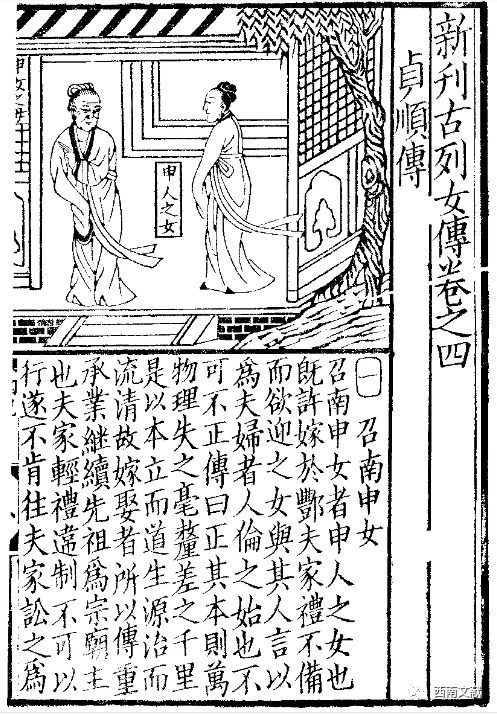 新刊古列女傳卷之四
貞順傳
申人之女
一
召南申女
召南申女者申人之女也
既許嫁於酆夫家禮不備
而欲迎之女與其人言以
為夫婦者人倫之始也不
可不正傳曰正其本則萬
物理失之毫釐差之千里
是以本立而道生源治而
流清故嫁娶者所以傳重
承業継續先祖爲宗廟主
也夫家輕禮違制不可以
行遂不肯往夫家訟之爲
西南文献